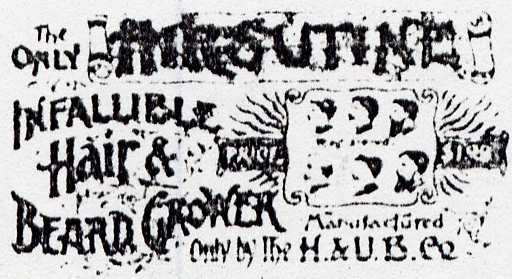 The
ONLY HIRSUTINE
INFALLIBLE
Hair &
BEARD GROWER
Manufactured
Only by The H. & U. B. Co